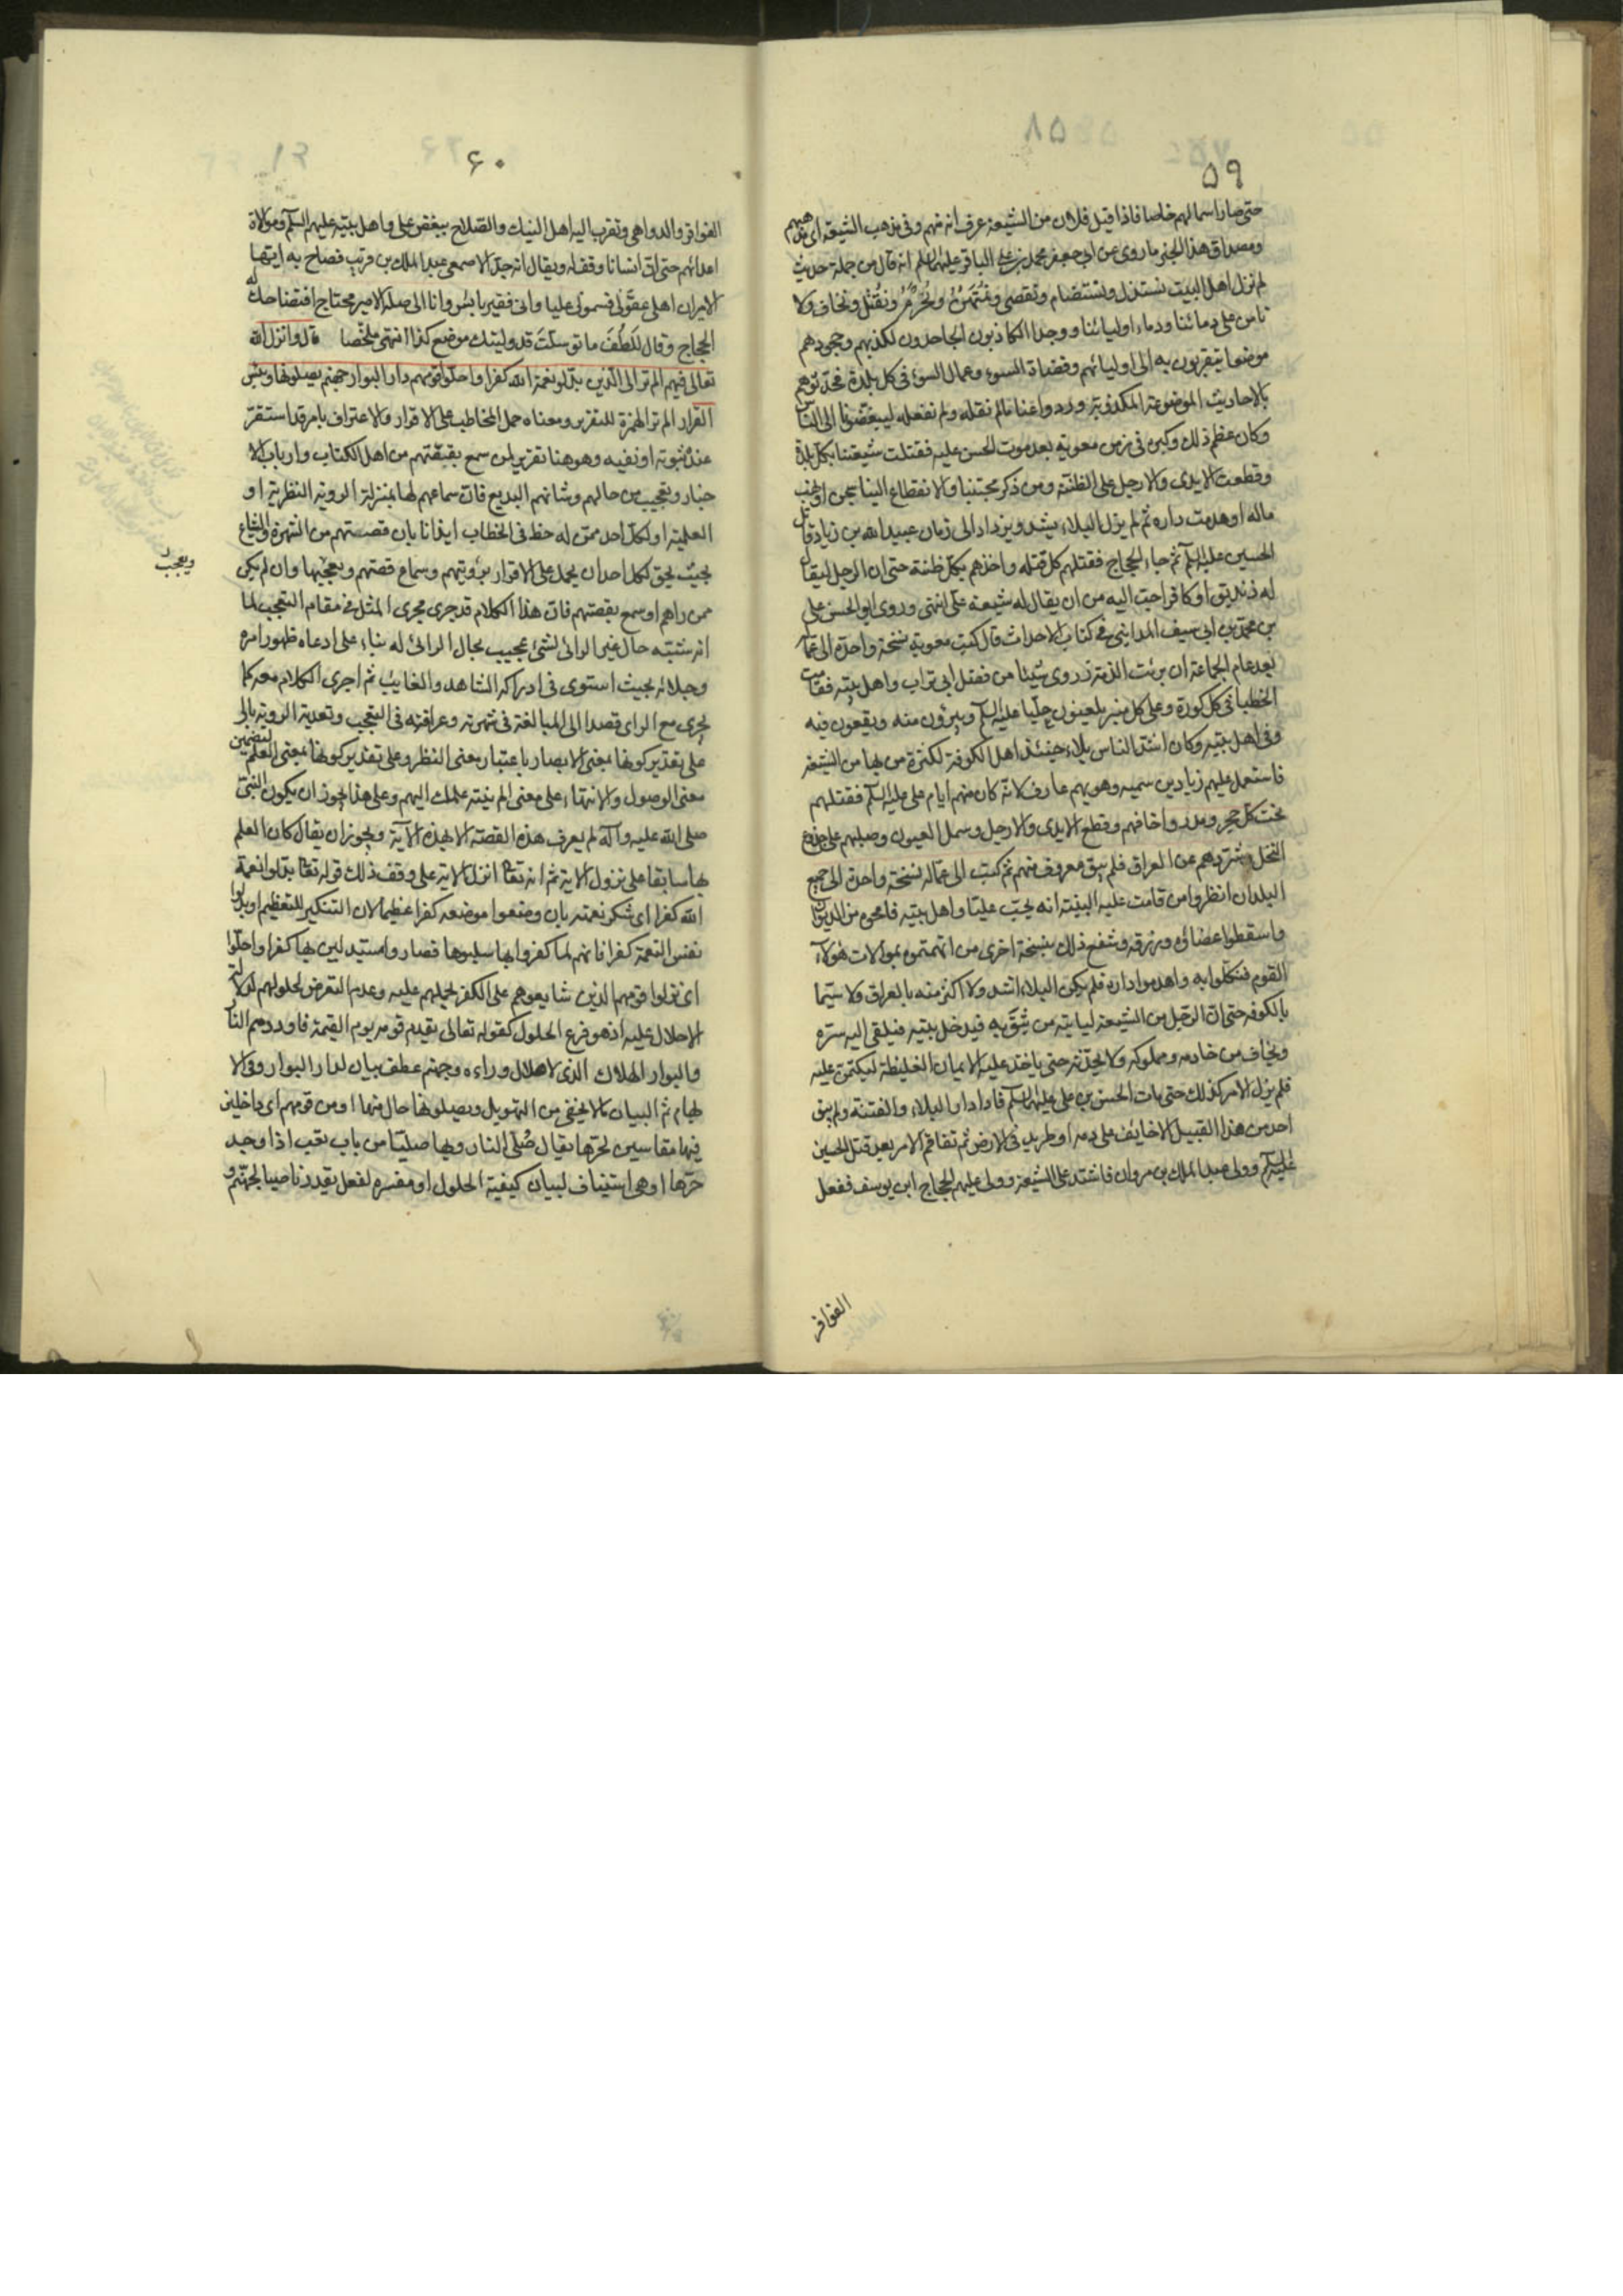 ٥٩
حتى صار اسما لهم خاصا فاذا قيل فلان من الشيعة عرف انه منهم وفى مذهب الشيعة اى مذهبهم
ومصداق هذا الخبر ما روى عن ابى جعفر محمد بن على الباقر عليهما السلم انه قال من جملة حديث
لم نزل اهل البيت نستذل ونستضام ونقصى ونمتهن ونحرم ونقتل ونخاف ولا
نامن على دمائنا ودماء اوليائنا ووجد الكاذبون الجاحدون لكذبهم وجحودهم
موضعا يتقربون به الى اوليائهم وقضاة السوء وعمال السوء فى كل بلدة فحدثوهم
بالاحاديث الموضوعة المكذوبة ورووا عنا ما لم نقله ولم نفعله ليبغضونا الى الناس
وكان عظم ذلك وكبره فى زمن معوية بعد موت الحسن عليه فقتلت شيعتنا بكل بلدة
وقطعت الايدى والارجل على الظنة ومن ذكر بحبنا والانقطاع الينا سجن او نهب
ماله او هدمت داره ثم لم يزل البلاء يشتد ويزداد الى زمان عبيد الله بن زياد قاتل
الحسين عليه السلم ثم جاء الحجاج فقتلهم كل قتله واخذهم بكل ظنة حتى ان الرجل ليقال
له زنديق او كافر احب اليه من ان يقال له شيعة على انتهى وروى ابو الحسن على
بن محمد بن ابى سيف المداينى فى كتاب الاحداث قال كتب معوية نسخة واحدة الى عماله
بعد عام الجماعة ان برئت الذمة ممن روى شيئا من فضل ابى تراب واهل بيته فقامت
الخطباء فى كل كورة وعلى كل منبر يلعنون عليا عليه السلم ويبرؤن منه ويقعون فيه
وفى اهل بيته وكان اشد الناس بلاء حينئذ اهل الكوفة لكثرة من بها من الشيعة
فاستعمل عليهم زياد بن سميه وهو بهم عارف لانه كان منهم ايام على عليه السلم فقتلهم
تحت كل حجر ومدر واخافهم وقطع الايدى والارجل وسمل العيون وصلبهم على جذوع
النخل وشردهم عن العراق فلم يبق معروف منهم ثم كتب الى عماله نسخة واحدة الى جميع
البلدان انظروا من قامت عليه البينة انه يحب عليا واهل بيته فامحوه من الديوان
واسقطوا عطائه ورزقه وشفع ذلك بنسخة اخرى من اتهمتموه بموالات هؤلاء
القوم فنكلوا به واهدموا داره فلم يكن البلاء اشد ولا اكثر منه بالعراق ولا سيما
بالكوفه حتى ان الرجل من الشيعة لياتيه من يثق به فيدخل بيته فيلقى اليه سره
ويخاف من خادمه ومملوكه ولا يحدثه حتى ياخذ عليه الايمان الغليظة ليكتمن عليه
فلم يزل الامر كذلك حتى مات الحسن بن على عليهما السلم فازداد البلاء والفتنة ولم يبق
احد من هذا القبيل الا خايف على دمه او طريد فى الارض ثم تفاقم الامر بعد قتل الحسين
عليه السلم وولى عبد الملك بن مروان فاشتد على الشيعة وولى عليهم الحجاج ابن يوسف ففعل
الفواقر
٦٠
الفواقر والدواهى وتقرب اليه اهل النسك والصلاح ببغض على واهل بيته عليهم السلم وموالاة
اعدائهم حتى ان انسانا وقف له ويقال انه جد الاصمعى عبد الملك بن قريب فصاح به ايها
الامير ان اهلى عقونى فسمونى عليا وانى فقير بائس وانا الى صلة الامير محتاج فتضاحك له
الحجاج وقال للطف ما توسلت قد وليتك موضع كذا انتهى ملخصا قال وانزل الله
تعالى فيهم الم تر الى الذين بدلوا نعمة الله كفرا واحلوا قومهم دار البوار جهنم يصلونها وبئس
القرار الم تر الهمزة للتقرير ومعناه حمل المخاطب على الاقرار والاعتراف بامر قد استقر
عنده ثبوته او نفيه وهو هنا تقرير لمن سمع بقصتهم من اهل الكتاب وارباب الا
خبار وتعجيب من حالهم وشانهم البديع فان سماعهم لها بمنزلة الروية النظرية او
العلمية او لكل احد ممن له حظ فى الخطاب ايذانا بان قصتهم من الشهرة والشياع
بحيث يحق لكل احد ان يحمل على الاقرار برؤيتهم وسماع قصتهم وتعجبها وان لم يكن
ويعجب
ممن راهم او سمع بقصتهم فان هذا الكلام قد جرى مجرى المثل فى مقام التعجب لما
انه شبه حال غير الرائى لشئ عجيب بحال الرائى له بناء على ادعاء ظهور امره
وجلائه بحيث استوى فى ادراكه الشاهد والغايب ثم اجرى الكلام معه كما
يجرى مع الراى قصدا الى المبالغة فى شهرته وعراقته فى التعجب وتعدية الروية بالى
على تقدير كونها بمعنى الابصار باعتبار معنى النظر وعلى تقدير كونها بمعنى العلم لتضمين
معنى الوصول والانتهاء على معنى الم ينته علمك اليهم وعلى هذا يجوز ان يكون النبى
صلى الله عليه وآله لم يعرف هذه القصة الا بهذه الآية ويجوز ان يقال كان العلم
بها سابقا على نزول الاية ثم انه تعالى انزل الاية على وفق ذلك قوله تعالى بدلوا نعمة
الله كفرا اى شكر نعمته بان وضعوا موضعه كفرا عظيما لان التنكير للتعظيم او بدلوا
نفس النعمة كفرا فانهم لما كفروا بها سلبوها فصاروا مستبدلين بها كفرا واحلوا
اى نزلوا قومهم الذين شايعوهم على الكفر بحملهم عليه وعدم التعرض لحلولهم لدلالة
الاحلال عليه اذ هو فرع الحلول كقوله تعالى يقدم قومه يوم القيمة فاوردهم النار
والبوار الهلاك الذى لا هلاك وراءه وجهنم عطف بيان لدار البوار وفى الا
بهام ثم البيان ما لا يخفى من التهويل ويصلونها حال منها او من قومهم اى داخلين
فيها مقاسين لحرها يقال صلى النار وبها صليا من باب تعب اذا وجد
حرها او هى استيناف لبيان كيفية الحلول او مفسره لفعل يقدر ناصبا لجهنم و